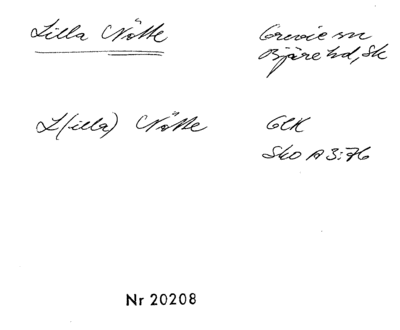 Lilla Nötte
Grevie sn
Bjäre hd, Sk
L(illa) Nötte
GEK
Sko A 3:76
Nr 20208